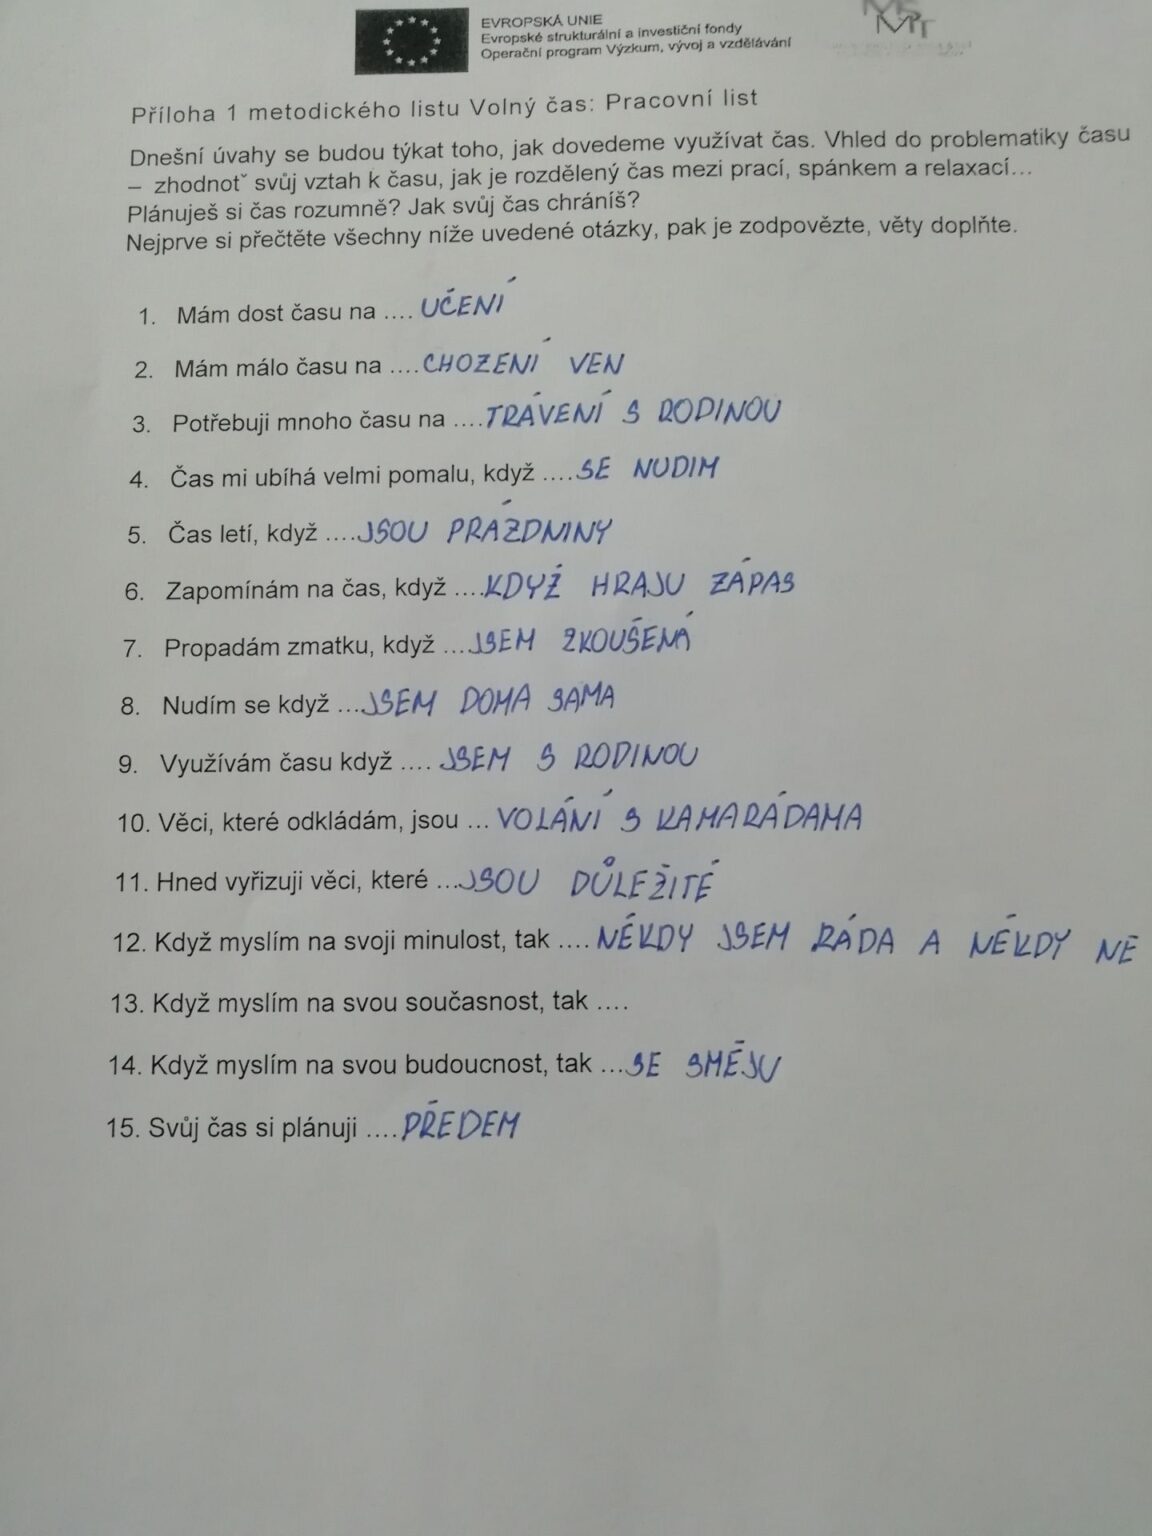 EVROPSKÁ UNIE
Evropské strukturální a investiční fondy
Operační program Výzkum, vývoj a vzdělávání
Příloha 1 metodického listu Volný čas: Pracovní list
Dnešní úvahy se budou týkat toho, jak dovedeme využívat čas. Vhled do problematiky času
– zhodnotˇ svůj vztah k času, jak je rozdělený čas mezi prací, spánkem a relaxací...
Plánuješ si čas rozumně? Jak svůj čas chráníš?
Nejprve si přečtěte všechny níže uvedené otázky, pak je zodpovězte, věty doplňte.
1. Mám dost času na .... UČENÍ
2. Mám málo času na .... CHOZENÍ VEN
3. Potřebuji mnoho času na .... TRÁVENÍ S RODINOU
4. Čas mi ubíhá velmi pomalu, když .... SE NUDIM
5. Čas letí, když .... JSOU PRÁZDNINY
6. Zapomínám na čas, když .... KDYŽ HRAJU ZÁPAS
7. Propadám zmatku, když ... JSEM ZKOUŠENÁ
8. Nudím se když ... JSEM DOMA SAMA
9. Využívám času když .... JSEM S RODINOU
10. Věci, které odkládám, jsou ... VOLÁNÍ S KAMARÁDAMA
11. Hned vyřizuji věci, které ... JSOU DŮLEŽITÉ
12. Když myslím na svoji minulost, tak .... NĚKDY JSEM RÁDA A NĚKDY NE
13. Když myslím na svou současnost, tak ....
14. Když myslím na svou budoucnost, tak ... SE SMĚJU
15. Svůj čas si plánuji .... PŘEDEM